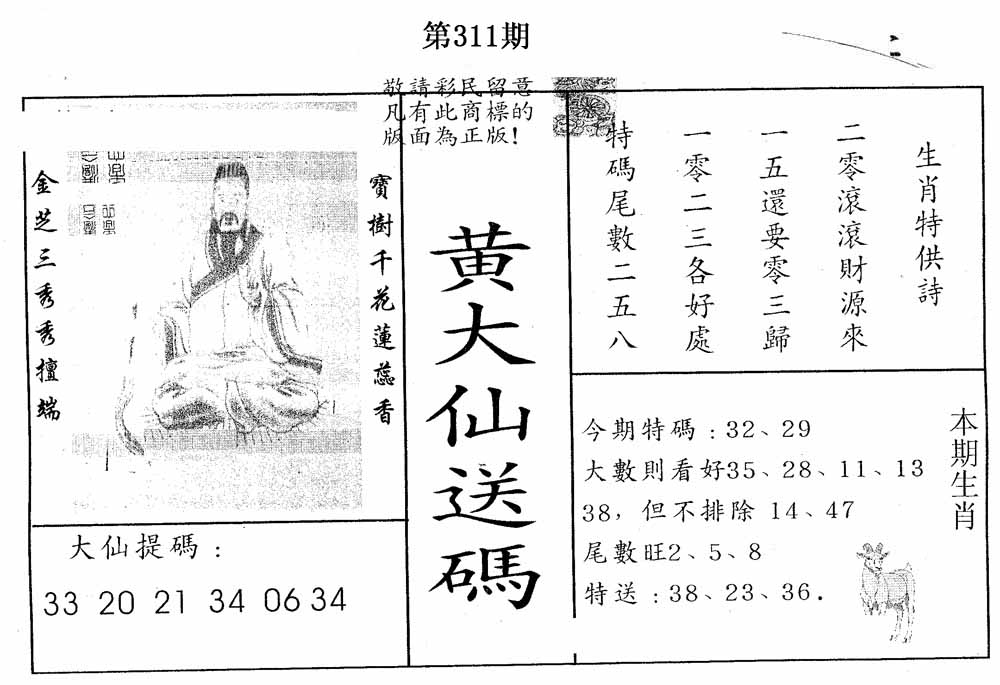 第311期
敬請彩民留意
凡有此商標的
版面為正版!
寶樹千花蓮蕊香
金芝三秀秀擅端
大仙提碼：
33 20 21 34 06 34
黄大仙送碼
生肖特供詩
二零滾滾財源來
一五還要零三歸
一零二三各好處
特碼尾數二五八
本期生肖
今期特碼：32、29
大數則看好35、28、11、13
38，但不排除 14、47
尾數旺2、5、8
特送：38、23、36.